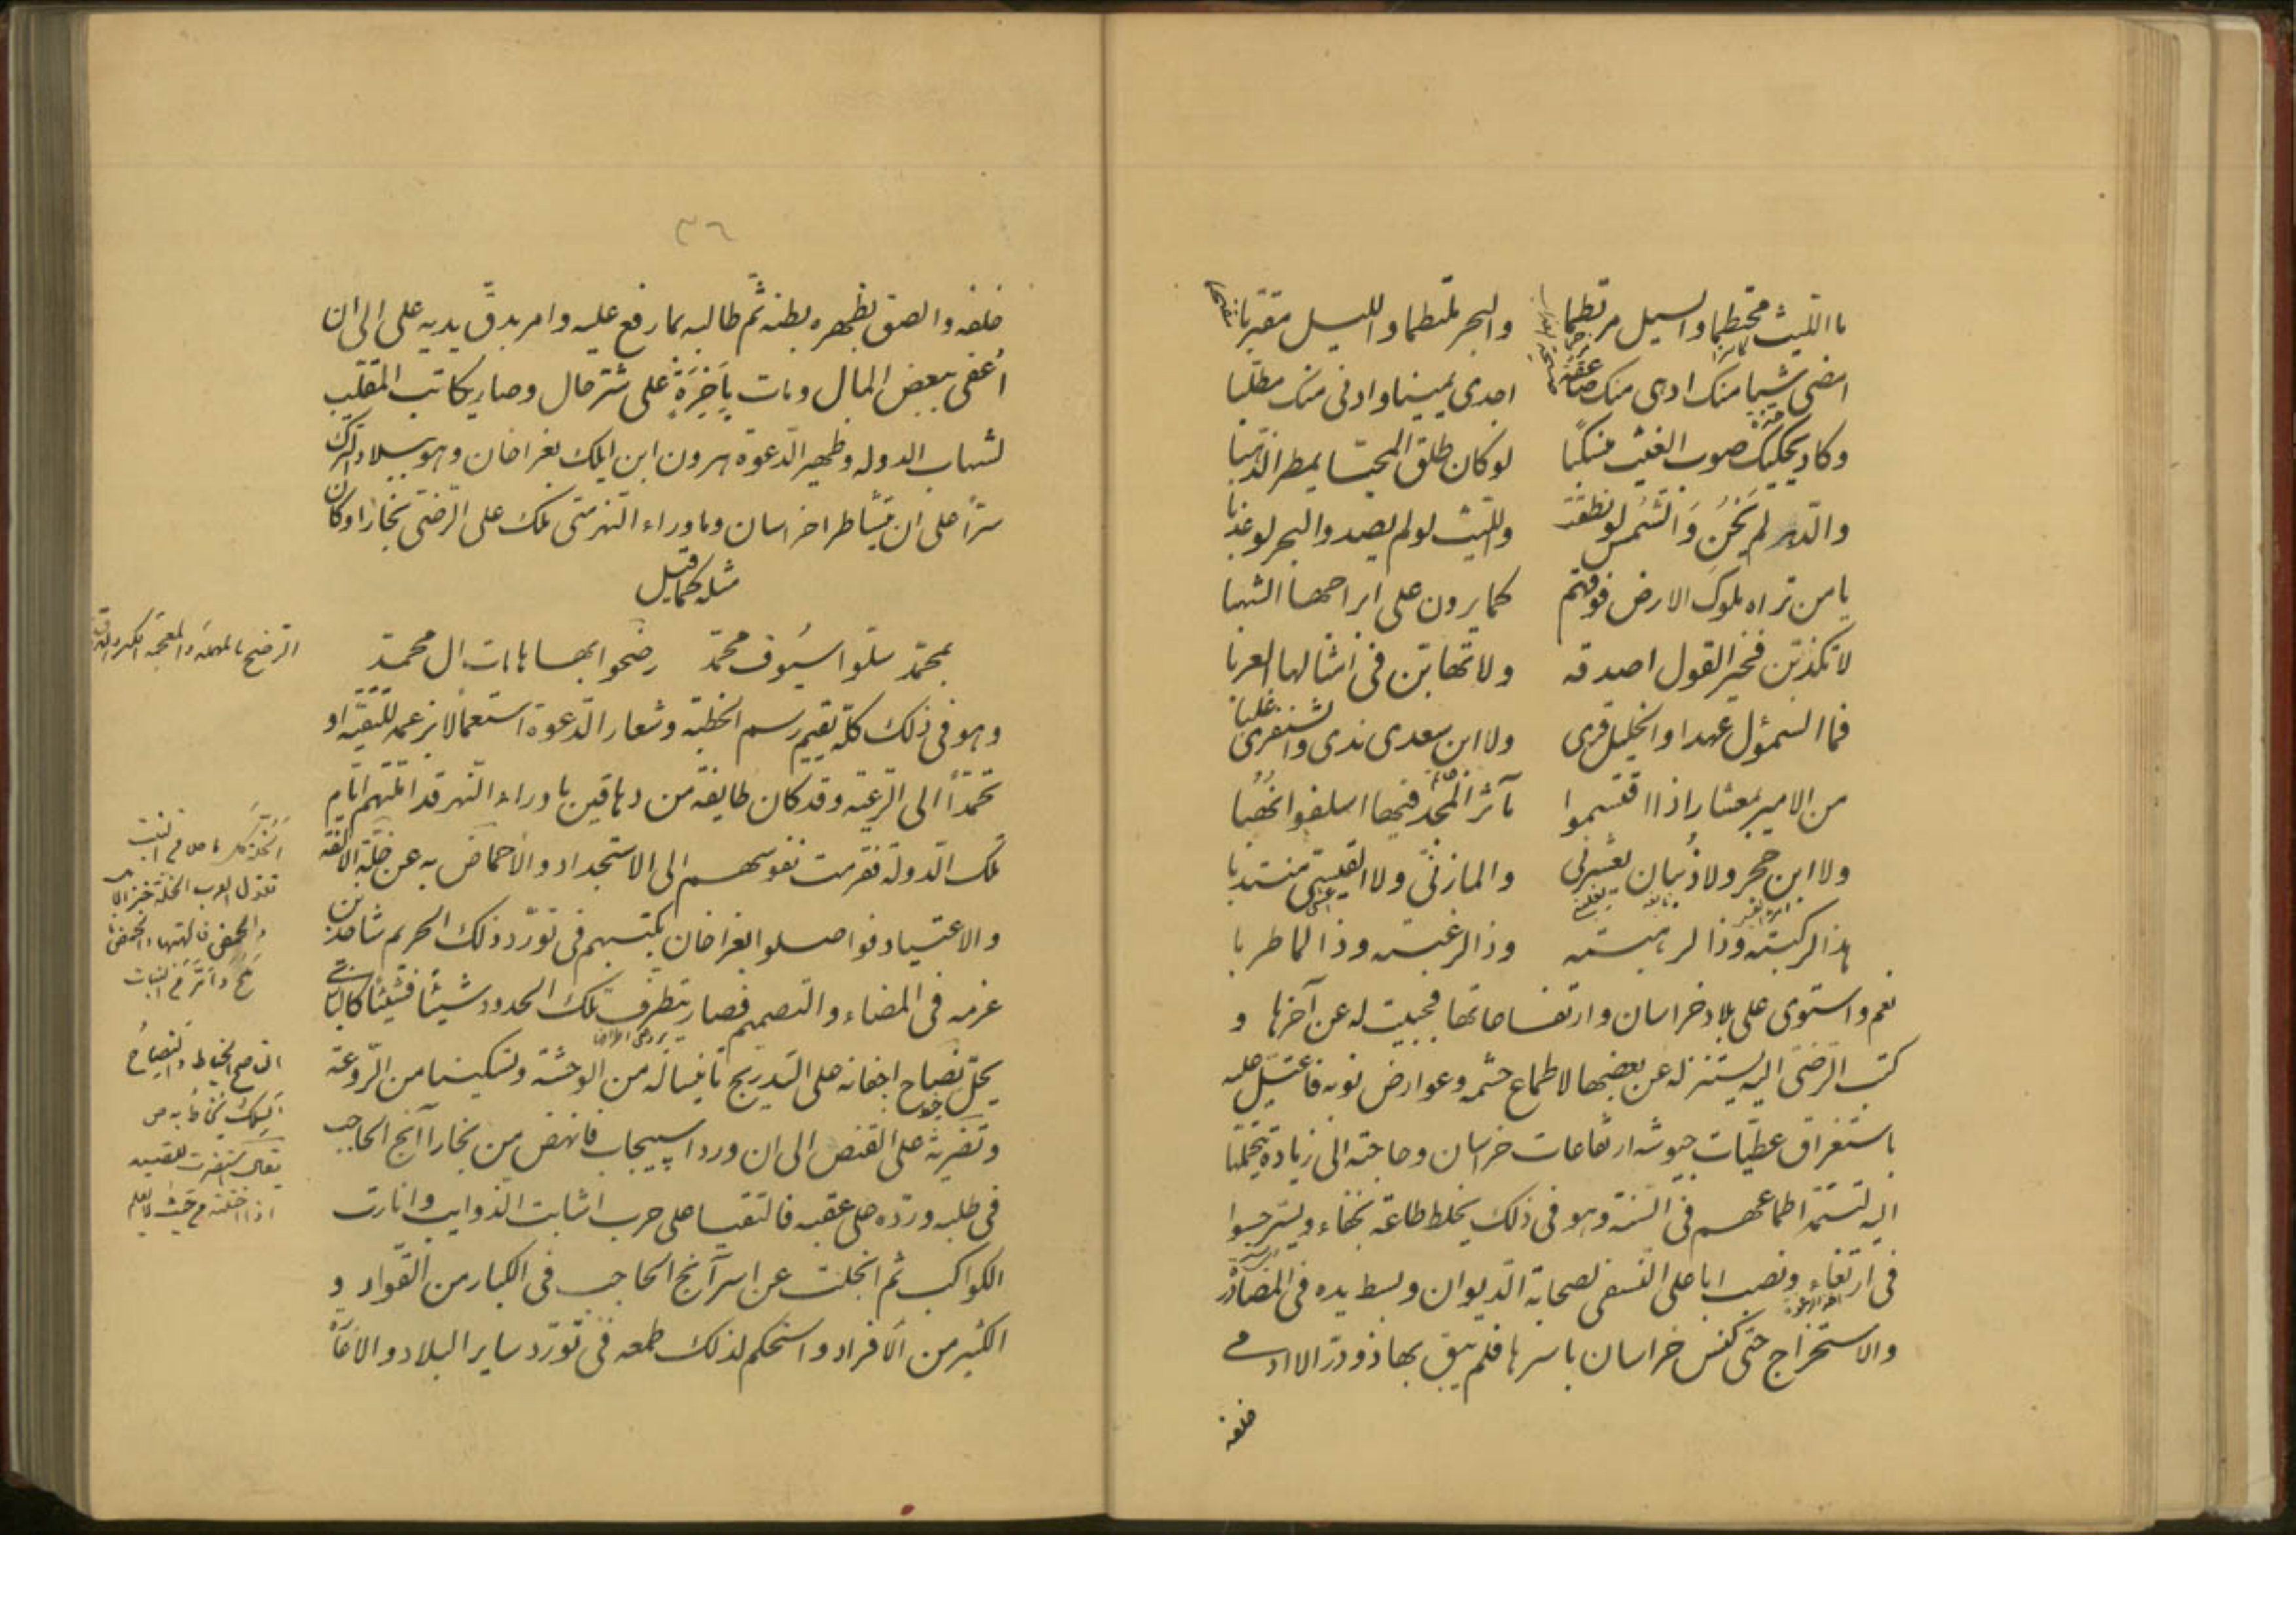 ما الليث محتطما والسيل مرتطما والبحر ملتطما والليل مقتربا
امضى شبا منك ادهى منك صاعقة اجدى يمينا وادنى منك مطلبا
وكاد يحكيك صوب الغيث منسكبا لو كان طلق المحيا يمطر الذهبا
والدهر لم يَخُن والشمس لو نطقت والليث لو لم يصد والبحر لو عذبا
يا من تراه ملوك الارض فوقهم كما يرون على ابراجها الشهبا
لا تكذبن فخير القول اصدقه ولا تهابن في امثالها العربا
فما السموئل عهدا والخليل قرى ولا ابن سعدى ندى والشنفرى غلبا
من الامير بمعشار اذا اقتسموا مآثر المجد فيما اسلفوا نهبا
ولا ابن حجر ولا ذبيان يعشرني والمازني ولا القيسي منتدبا
هذا لركبته وذا لرهبته وذا لرغبته وذا لما طربا
نعم واستوى على بلاد خراسان وارتفاعاتها فجبيت له عن آخرها و
كتب الرضى اليه يستنزله عن بعضها لاطماع حشمه وعوارض نوبه فاعتل عليه
باستغراق عطيات جيوشه ارتفاعات خراسان وحاجته الى زيادة يتحملها
اليه لتستمد اطماعهم في السنة وهو في ذلك يخلط طاعة بخفاء ويسر حسوا
في ارتغاء ونصب ابا على النسفى لصحابة الديوان وبسط يده في المصادرة
والاستخراج حتى كنس خراسان باسرها فلم يبق بها ذو در الا ادمى
خلفه
٣٦
خلفه والصق بظهره بطنه ثم طالبه بما رفع عليه وامر بدق يديه على الى ان
اعفى ببعض المال ومات بأَخِرَةٍ على شر حال وصار يكاتب الملقب
لشهاب الدوله وظهير الدعوة هرون ابن ايلك بغراخان وهو ببلاد الترك
سرا على ان يتشاطرا خراسان وما وراء النهر متى ملك على الرضى بخارا وكان
مثله كما قيل
بمحمد سلوا سيوف محمد رضخوا بها هامات ال محمد
وهو في ذلك كله يقيم رسم الخطبة وشعار الدعوة استعمالا بزعمه للتقيه او
تحمدا الى الرعية وقد كان طايفة من دهاقين ما وراء النهر قد املتهم ايام
تلك الدولة فقرمت نفوسهم الى الاستجداد والاحماض به عن خلة الالفة
والاعتياد فواصلوا بغراخان بكتبهم في تورد ذلك الحريم شاحذين
عزمه في المضاء والتصميم فصار يتطرف تلك الحدود شيئا فشيئا كالبازي
يحل نصاح اجفانه على التدريج تانيسا له من الوحشة وتسكينا من الروعة
وتضرية على القنص الى ان ورد اسبيجاب فانهض من بخارا آنج الحاجب
في طلبه ورده على عقبه فالتقيا على حرب اشابت الذوايب وانارت
الكواكب ثم انجلت عن اسر آنج الحاجب في الكبار من القواد و
الكثير من الافراد واستحكم لذلك طمعه في تورد ساير البلاد والافاة
الرضخ بالمهملة والمعجمة الكسر والدق
تقول العرب الخلة خبز الابل
والحمض فاكهتها
الناصح الخياط والنصاح
السلك يخاط به ص